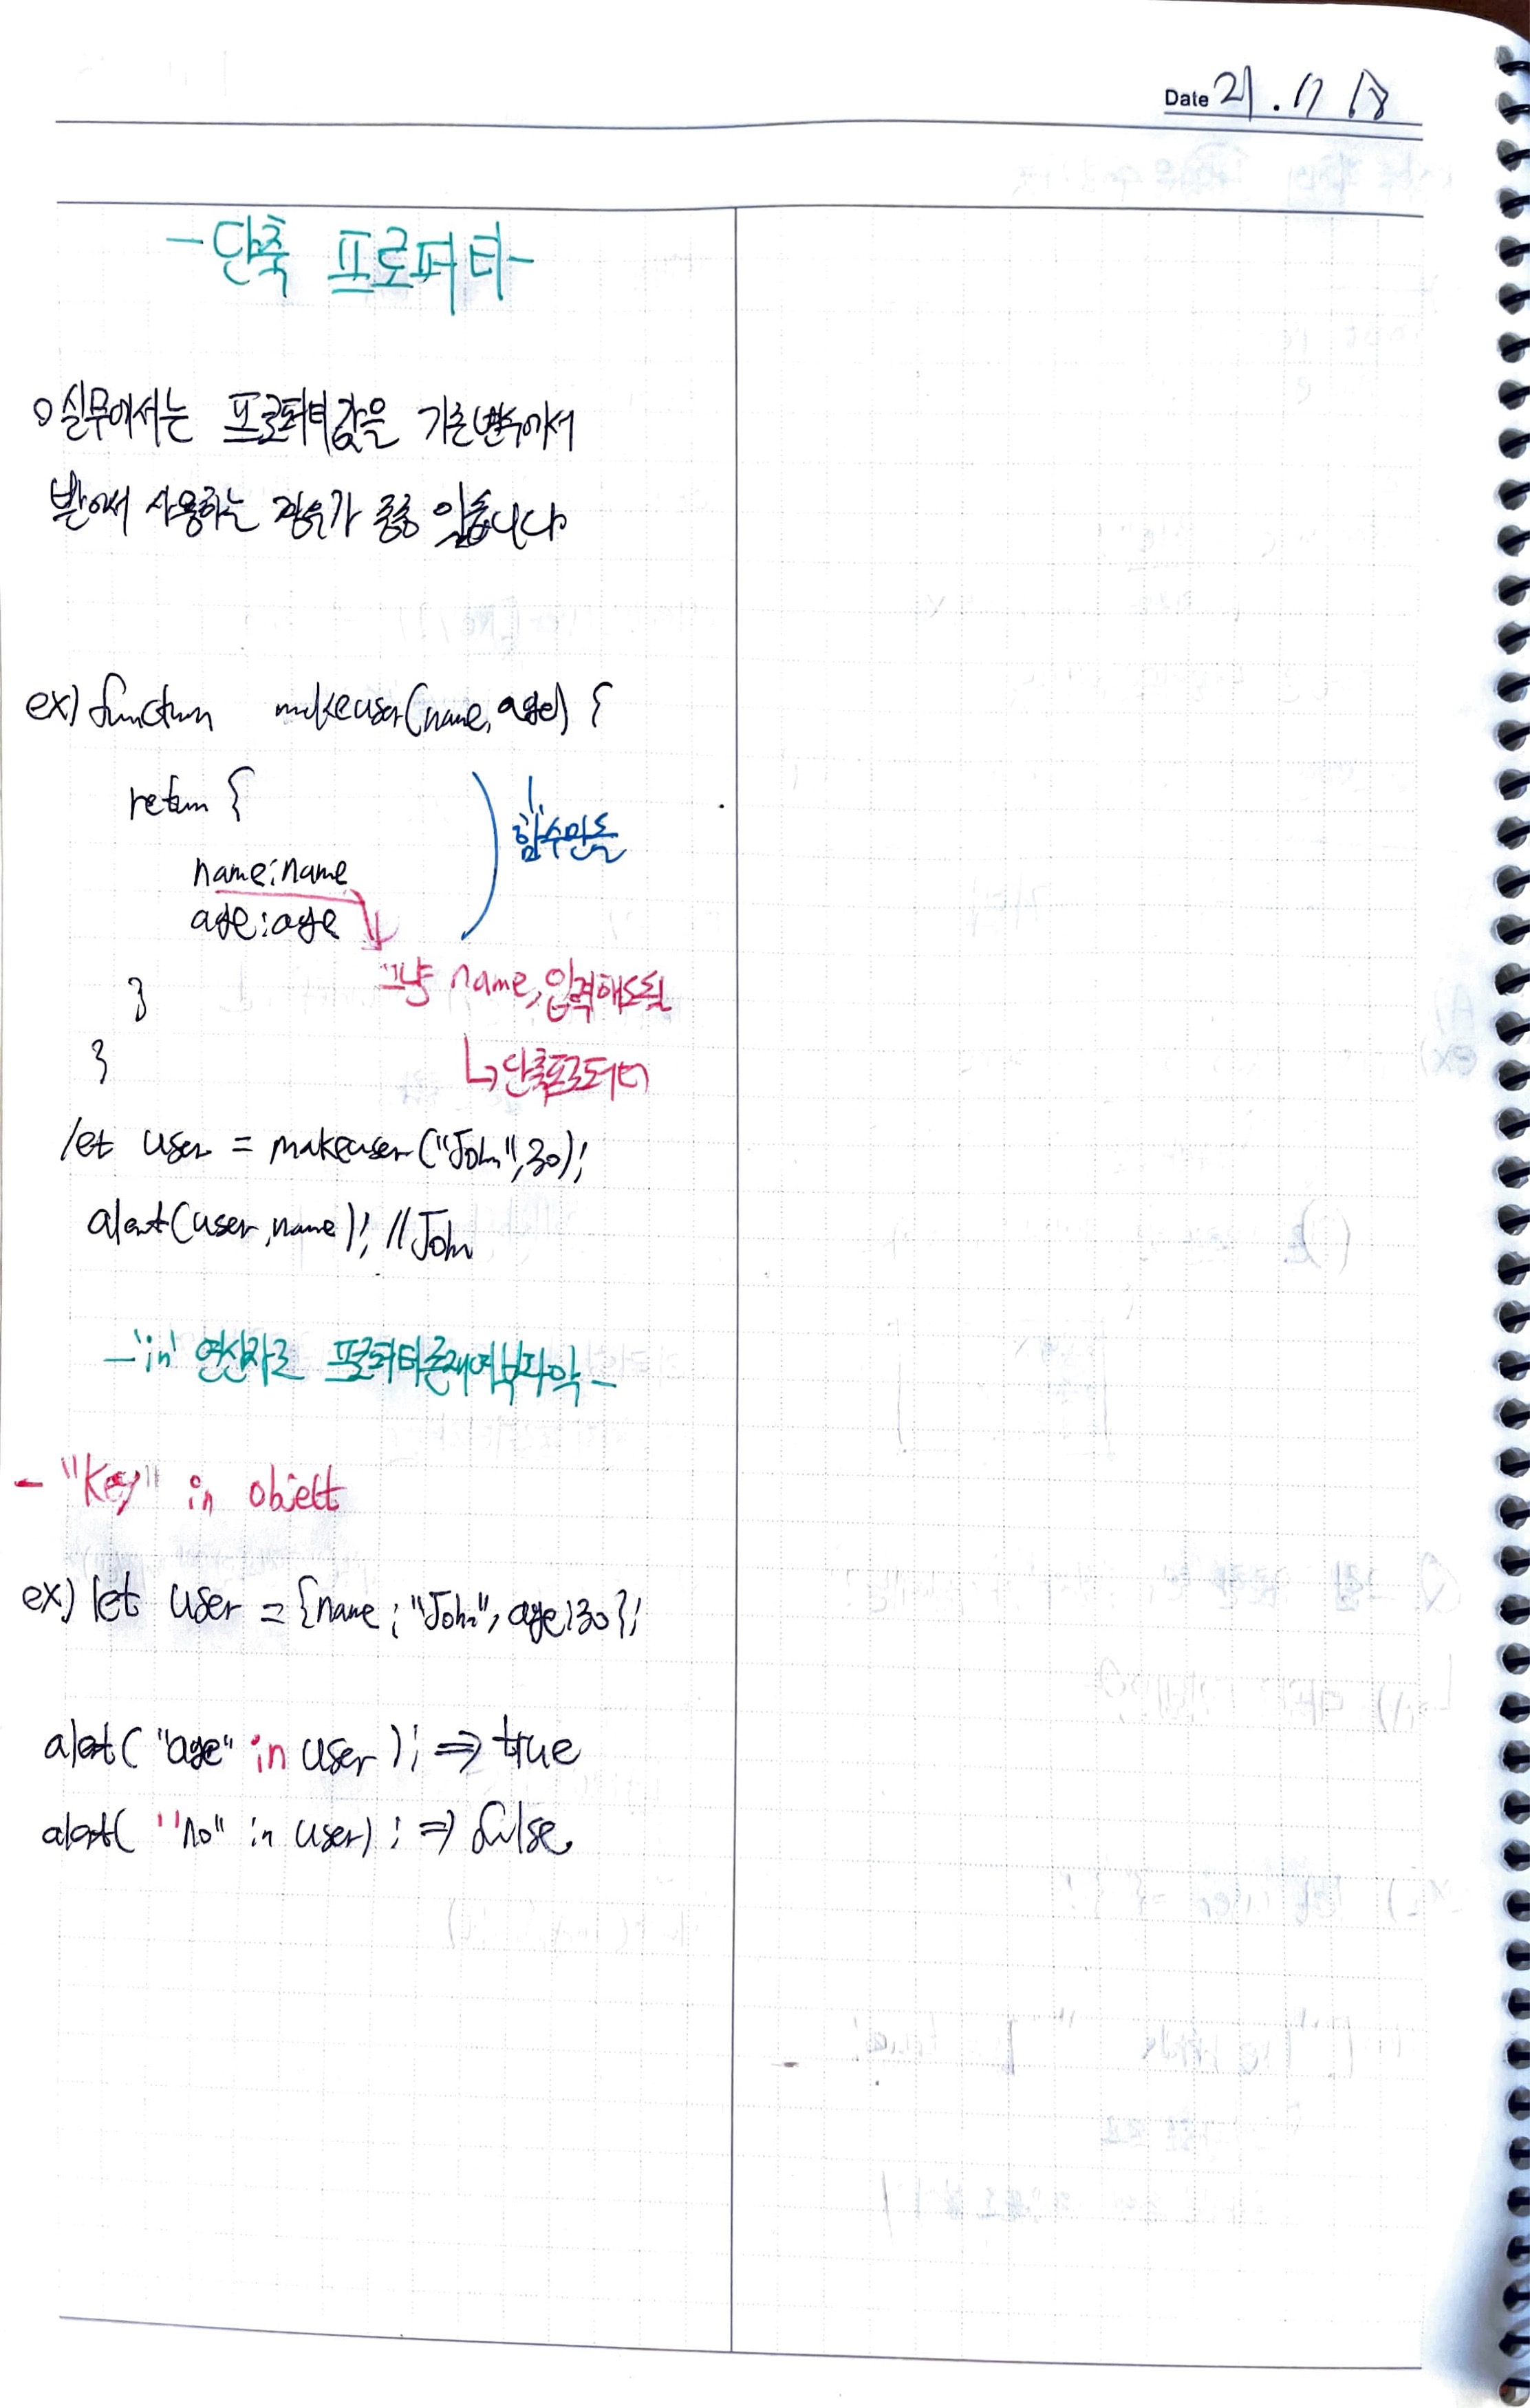 Date 21. 11 18
- 단축 프로퍼티 -
o 실무에서는 프로퍼티값을 기존변수에서
받아서 사용하는 경우가 종종 있습니다
ex) function makeuser(name, age) {
return {
함수만듦
name:name
age:age
그냥 name, 입력해도됨
}
↳ 단축프로퍼티
}
let user = makeuser("John", 30);
alert(user.name); // John
- 'in' 연산자로 프로퍼티존재여부파악 -
- "Key" in object
ex) let user = {name: "John", age:30};
alert( "age" in user ); => true
alert( "no" in user) ; => false